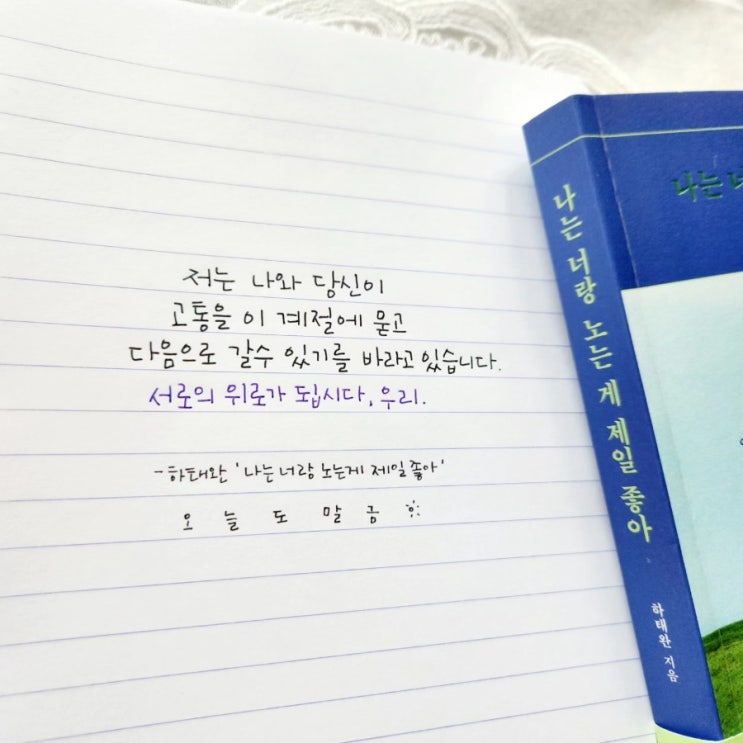 저는 나와 당신이
고통을 이 계절에 묻고
다음으로 갈수 있기를 바라고 있습니다.
서로의 위로가 됩시다, 우리.
-하태완 '나는 너랑 노는게 제일 좋아'
오늘도 말금
나는 너랑 노는 게 제일 좋아
하태완 지음
나는 너